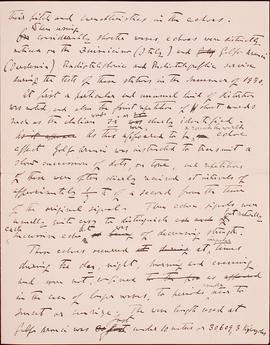 their pitch and characteristics in the echoes.
Then using
considerably shorter waves, echoes were distinctly
noticed on the Fiumicino (Italy) and Golfo Aranci
(Sardinia) Radiotelephonic and Radiotelegraphic service
during the tests of these stations in the summer of 1930.
At first a particular and unusual kind of
was noted and also the repetition of short words
such as the Italian was clearly identified.
As this appeared to be echo
effect Golfo Aranci was instructed to transmit a
slow succession of dots on tone, and repetitions
of these were often clearly received at intervals of
approximately of a second from the time
of the original signals. These echo signals were
usually, but easy to distinguish and
each of decreasing strength.
These echoes occurred at times
during the day, night, morning and evening
and were not, confined as
in the case of longer waves, to periods near to
sunset or sunrise. The wave length used at
Golfo Aranci was under 10 metres or 30609.3 kilocycles